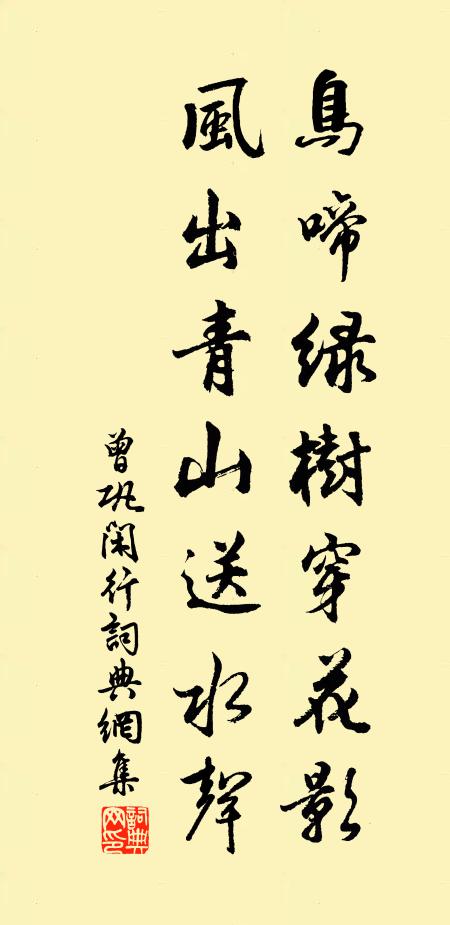 鳥啼緑樹穿花影
風出青山送水聲
曾巩閑行詞典網集
詞典網印